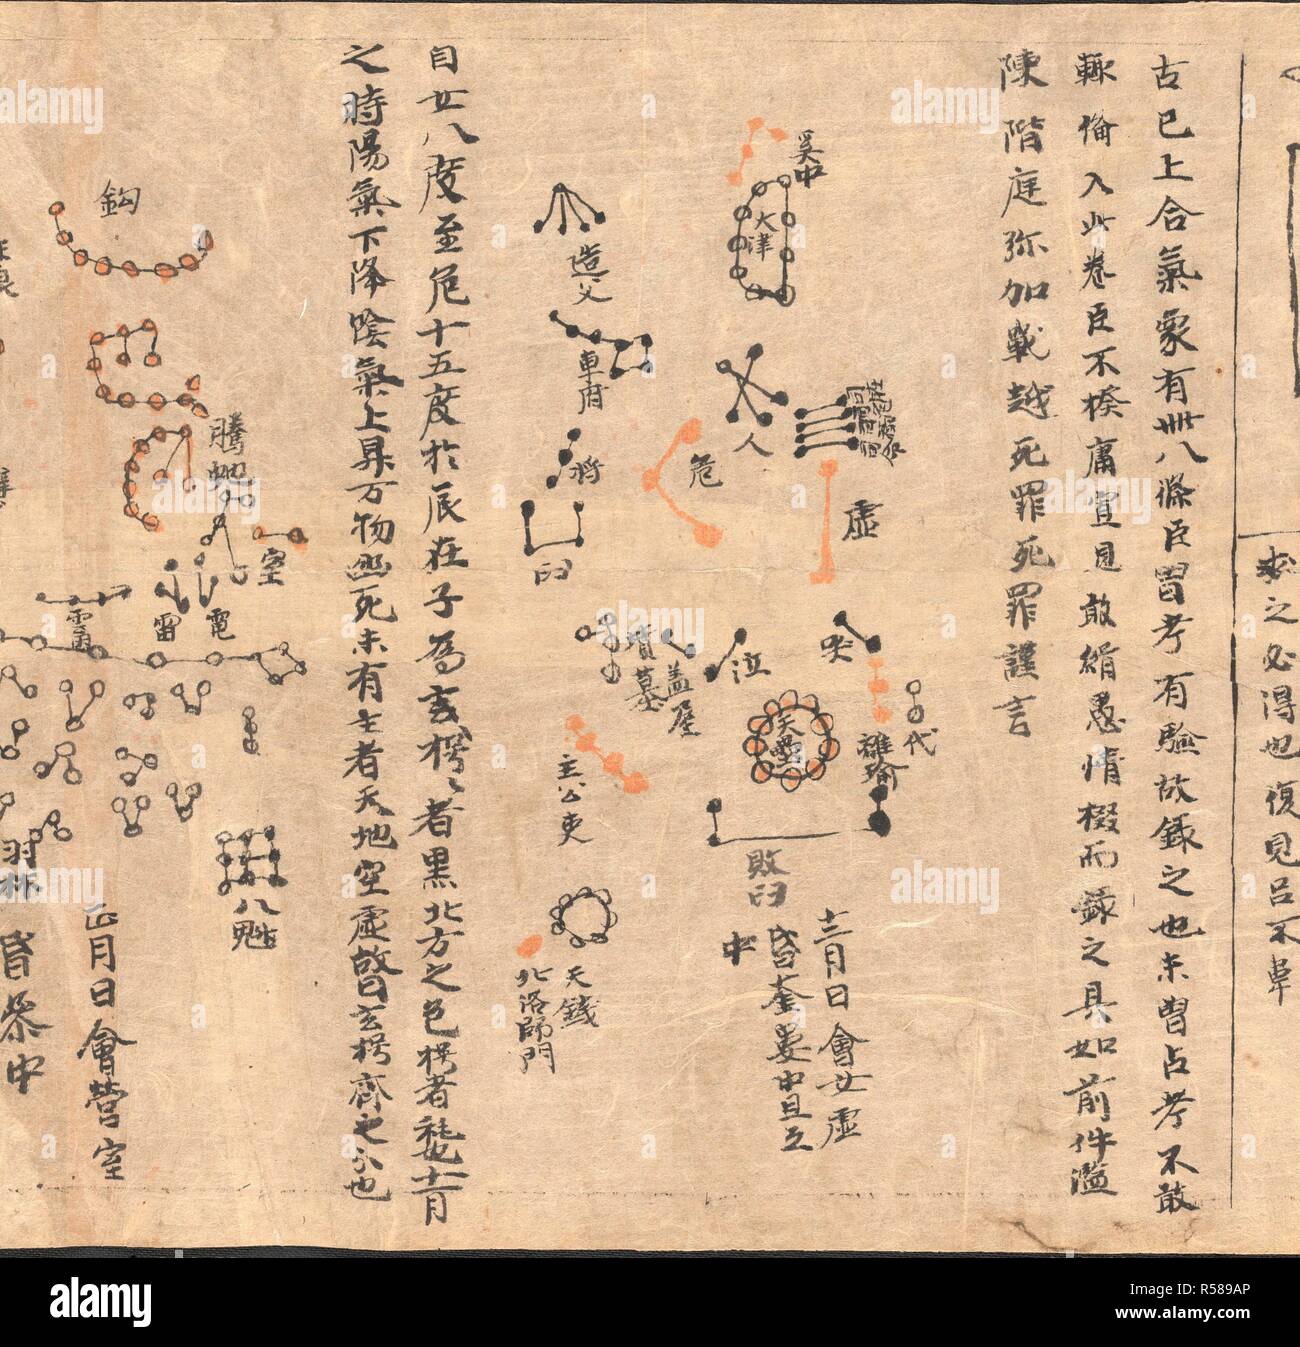 求之必得也復見呂不韋
古已上合氣象有卌八條臣曾考有驗故錄之也未曾占考不敢
輙備入此卷臣不揆庸冥見敢緝愚情掇而錄之具如前件濫
陳階庭弥加戰越死罪死罪謹言
奚中
大津
人
虚
危
造父
車府
將
臼
哭
泣
蓋屋
墳墓
代
離瑜
天壘
主公吏
敗臼
天錢
北落師門
十二月日會女虚
昏奎婁中旦互
中
自女八度至危十五度於辰在子為玄枵〻者黒北方之色枵者耗也十一月
之時陽氣下降陰氣上昇万物幽死未有生者天地空虚故曰玄枵齊之分也
鈎
騰虵
室
電
雷
八魁
羽林
正月日會營室
昏參中
alamy
Image ID: R589AP
www.alamy.com